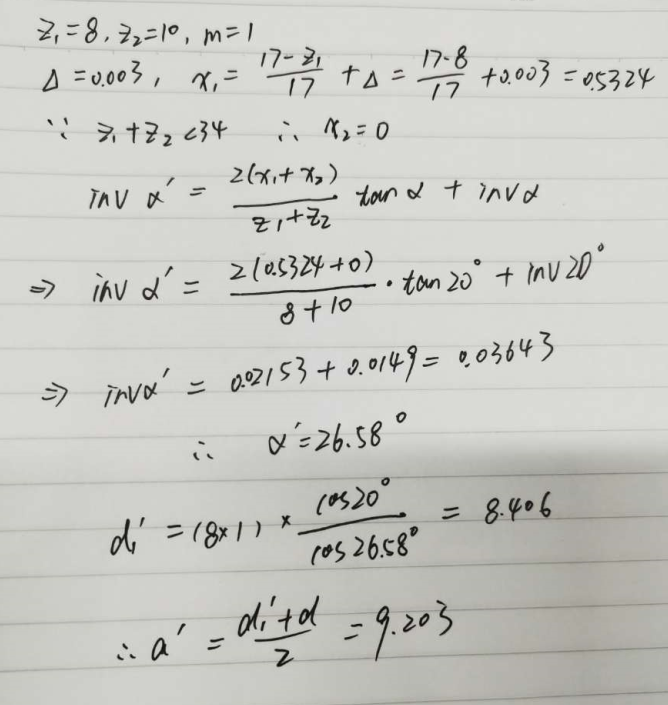 z₁=8, z₂=10, m=1
Δ=0.003, x₁= (17-z₁)/17 + Δ = (17-8)/17 + 0.003 = 0.5324
∵ z₁+z₂<34 ∴ x₂=0
inv α′ = 2(x₁+x₂)/(z₁+z₂) tan α + inv α
⇒ inv α′ = 2(0.5324+0)/(8+10) · tan 20° + inv 20°
⇒ inv α′ = 0.02153 + 0.0149 = 0.03643
∴ α′=26.58°
d₁′ = (8×1) × cos20°/cos26.58° = 8.406
∴ a′ = (d₁′+d)/2 = 9.203